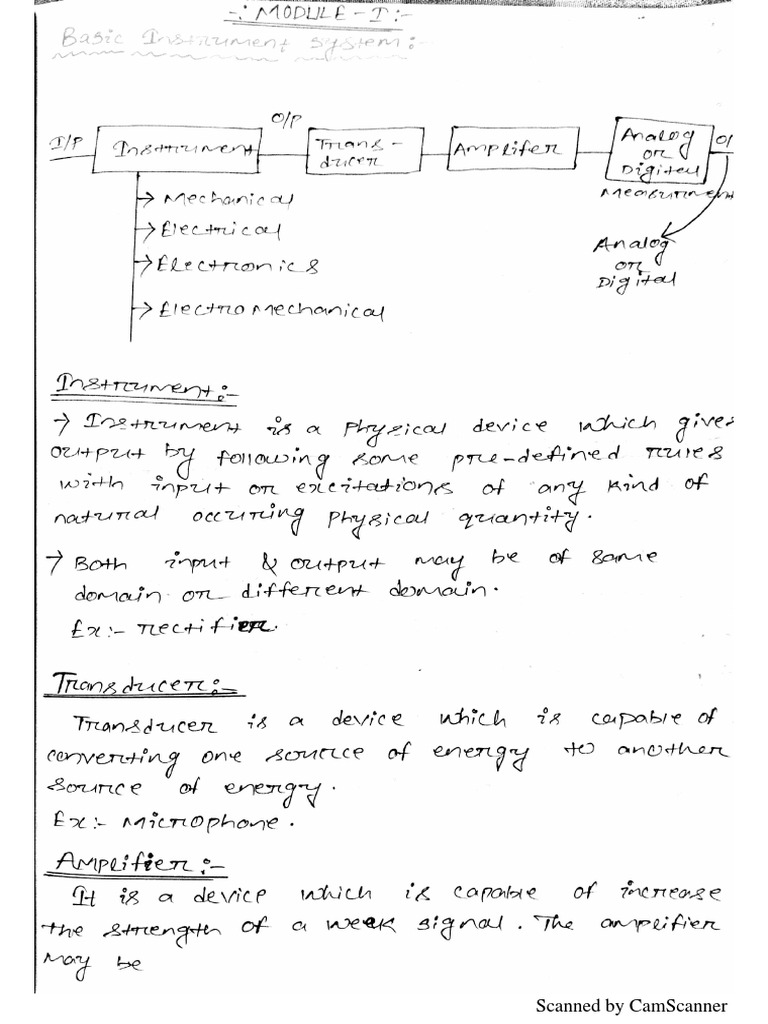 -: MODULE - I :-
Basic Instrument system:-
I/P
Instrument
O/P
Trans-
ducer
Amplifer
Analog
or
Digital
O/
Measurment
Mechanical
Electrical
Electronics
Electro Mechanical
Analog
or
Digital
Instrument:-
→ Instrument is a physical device which gives
output by following some pre-defined rules
with input or excitations of any kind of
natural occuring physical quantity.
→ Both input & output may be of same
domain or different domain.
Ex:- rectifier.
Transducer:-
Transducer is a device which is capable of
converting one source of energy to another
source of energy.
Ex:- Microphone.
Amplifier:-
It is a device which is capable of increase
the strength of a weak signal. The amplifier
may be
Scanned by CamScanner